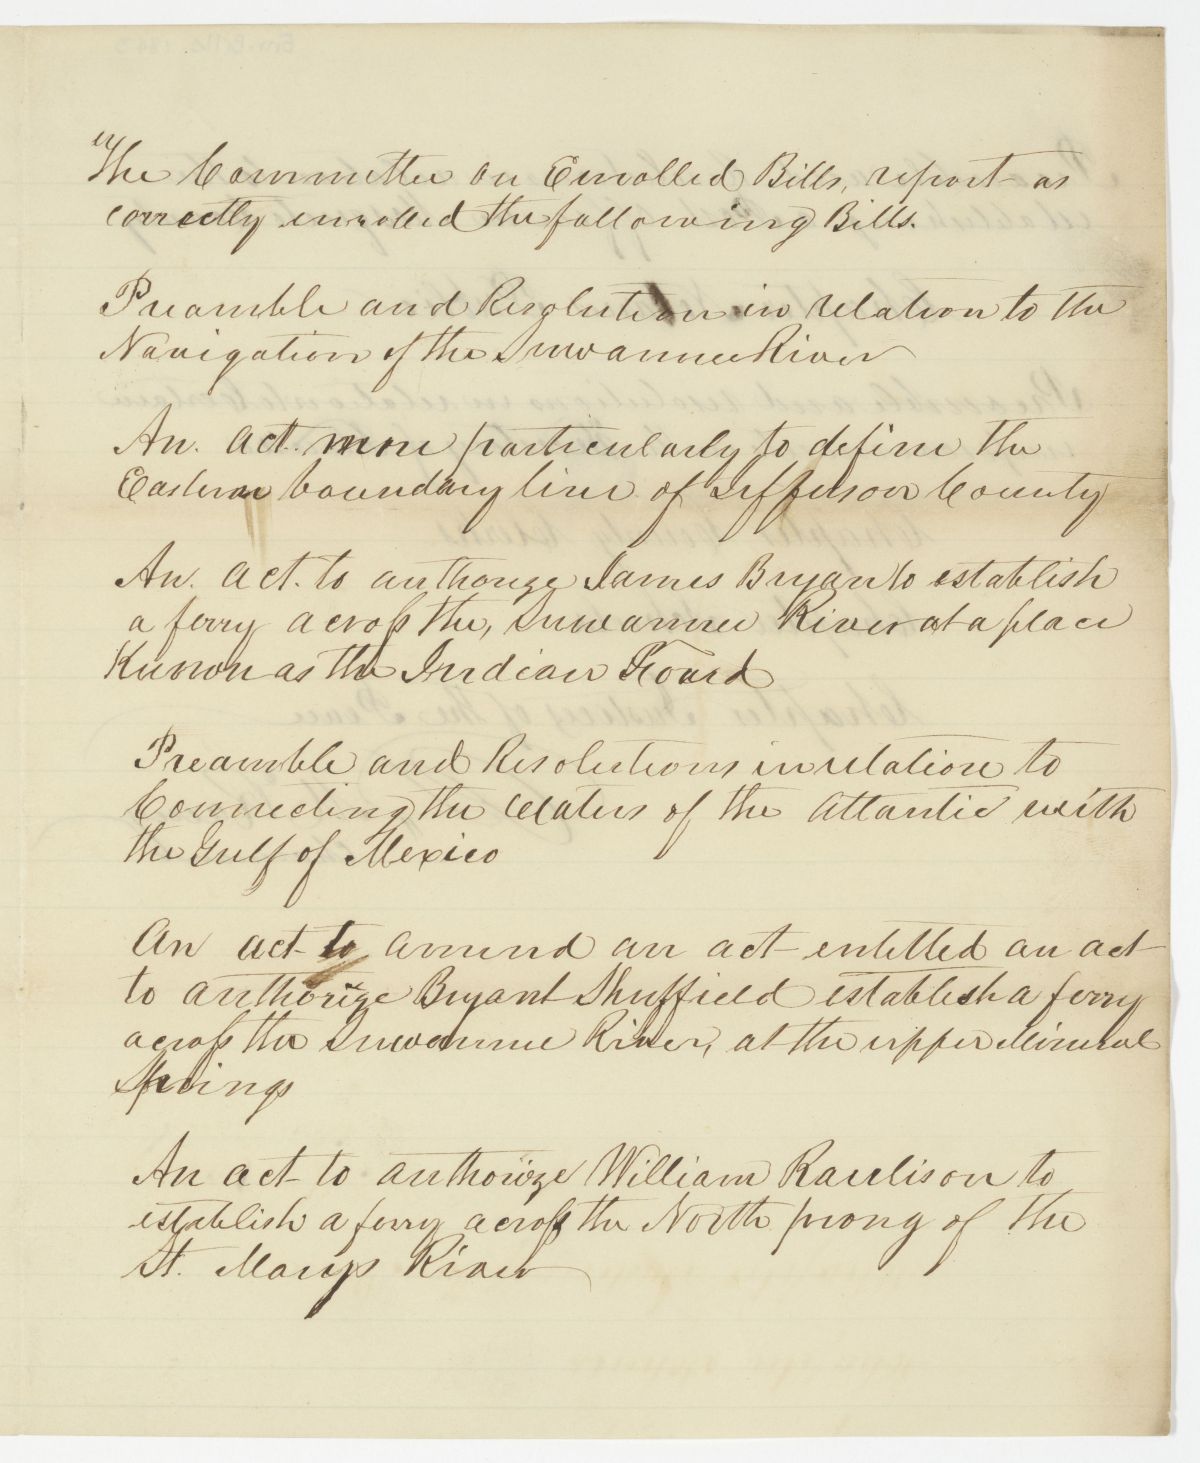 "The Committee on Enrolled Bills, report as
correctly enrolled the following Bills.
Preamble and Resolution in relation to the
Navigation of the Suwannee River
An. act. more particularly to define the
Eastern boundary line of Jefferson County
An. act. to authorize James Bryan to establish
a ferry across the, Suwannee River at a place
Known as the Indian Foard
Preamble and Resolutions in relation to
Connecting the Waters of the Atlantic with
the Gulf of Mexico
An act to amend an act entitled an act
to authorize Bryant Sheffield establish a ferry
across the Suwannee River, at the upper Mineral
Springs
An act to authorize William Raulison to
establish a ferry across the North prong of the
St. Marys River